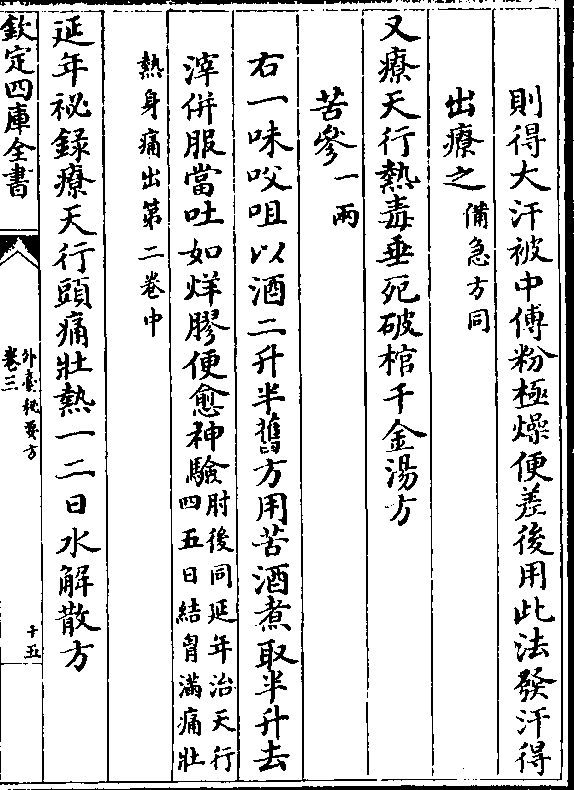 則得大汗被中傅粉極燥便差後用此法發汗得
出療之備急方同
又療天行熱毒垂死破棺千金湯方
苦參一兩
右一味㕮咀以酒二升半舊方用苦酒煮取半升去
滓併服當吐如烊膠便愈神驗肘後同延年治天行四五日結胷滿痛壯
熱身痛出第二卷中
延年祕錄療天行頭痛壯熱一二日水解散方
欽定四庫全書
外臺秘要方
卷三
十五